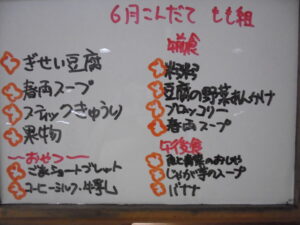 6月こんだて もも組
ぎせい豆腐
春雨スープ
スティックきゅうり
果物
〜おやつ〜
ごまショートブレット
コーヒーミルク・牛乳
午前食
豆腐の野菜あんかけ
ブロッコリー
春雨スープ
午後食
じゃが芋のスープ
バナナ